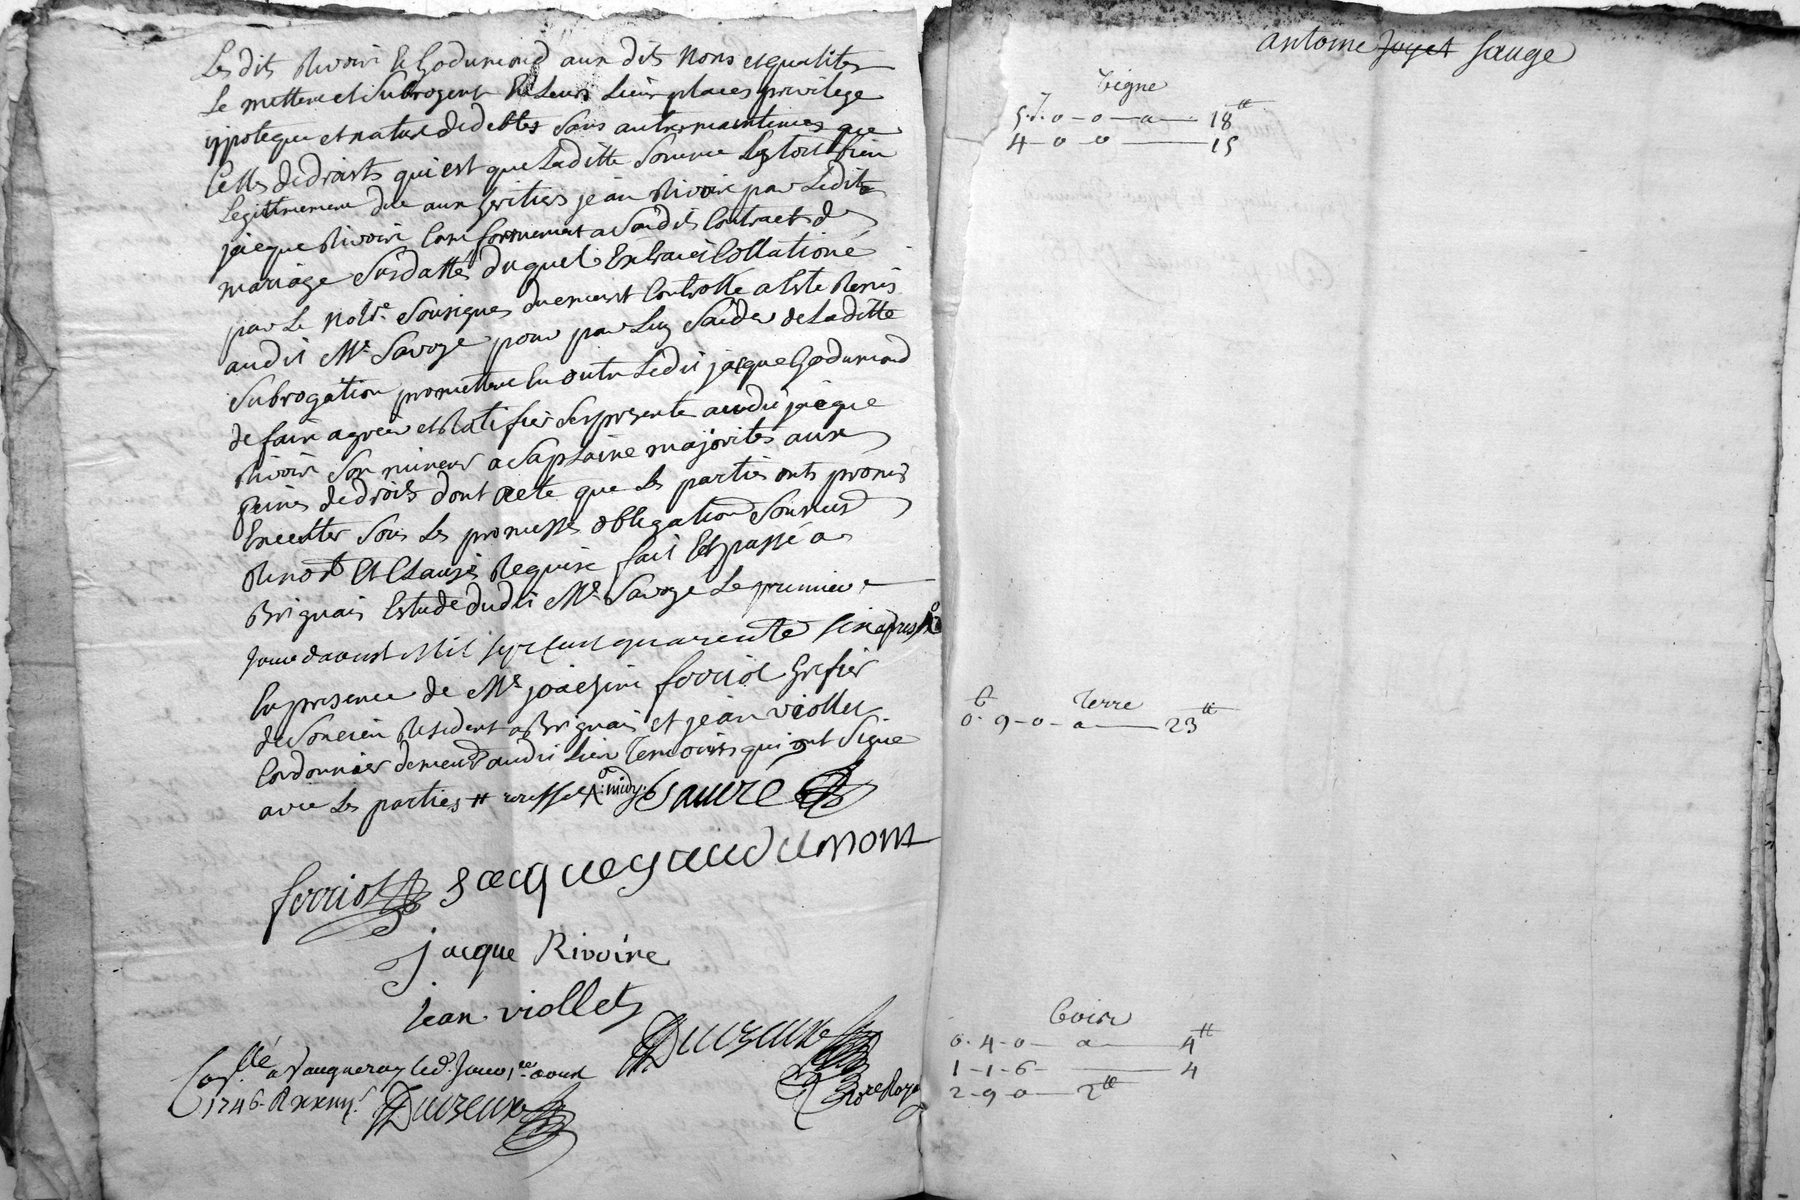 Les dits Rivoire & Godumond aux dits Noms et qualites
Le mettene et Subrogent En Leurs Lieu places privilege
ypoteque et nature de debtes Sans autres maintenues que
Celles de droits qui est que Laditte Somme Est tout bien
Legittimement due aux heritiers jean Rivoire par Ledit
jacque Rivoire Conformement a Sondit Contract de
mariage Susdatté duquel Extrait Collationé
par Le Notre. Sousigné duement Controllé a Esté Remis
audit Me. Savoye pour par Luy Saider de Laditte
Subrogation promettene En outre Ledit jacque Godumond
de faire agreer et Ratifier Ses presente audit jacque
Rivoire Son mineur a Sa plaine majorites aux
peines de droits dont acte que Les parties onts promis
Executer Sous Les promesses obligation Soumis
Renon. Et Clauses Requise fait Et passé a
Brignais Estude dudit Me. Savoye Le premier
Jour daoust Mil Sept Cent quarente Six apres
En presence de Me. joachim ferriol Grefier
de Soucieu Resident a Brignais et jean viollet
Cordonnier demeur audit Lieu Temoins qui ont Signé
avec Les parties # :midy:
ferriol jacque gaudumont
jacque Rivoire
jean viollet
Con.llé a Vaugneray led. Jour 1er. aoust
1746. R
antoine Joyet Sauge
Vigne
5.7. 0 - 0 - a - 18tt
4 - 0 - 0 - 15
Terre
0. 9 - 0 - a - 23tt
0. 4 - 0 - a - 4tt
1 - 1 - 6 - 4
2 - 9 - 0 - 2tt